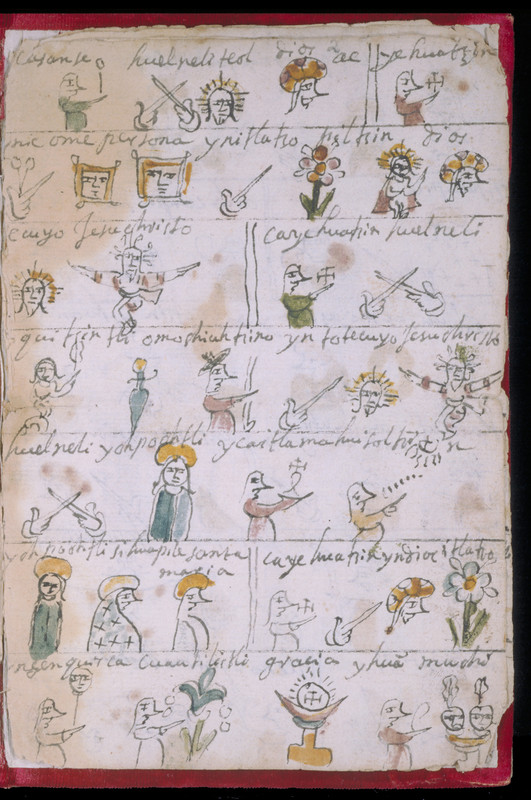 casanse huelneli teol dios ae yehuatzin
nic ome persona yni tlatio piltzin dios
ecuyo Jesuchristo caye huatzin huelneli
quitzintli omochiuhtzino yn totecuyo Jesuchristo
huelneli ychpochtli ycaitlamahuisoltzin
ychpochtli sihuapile santa caye huatzin yn dios itlatio
maria
gracia yhuã muchi